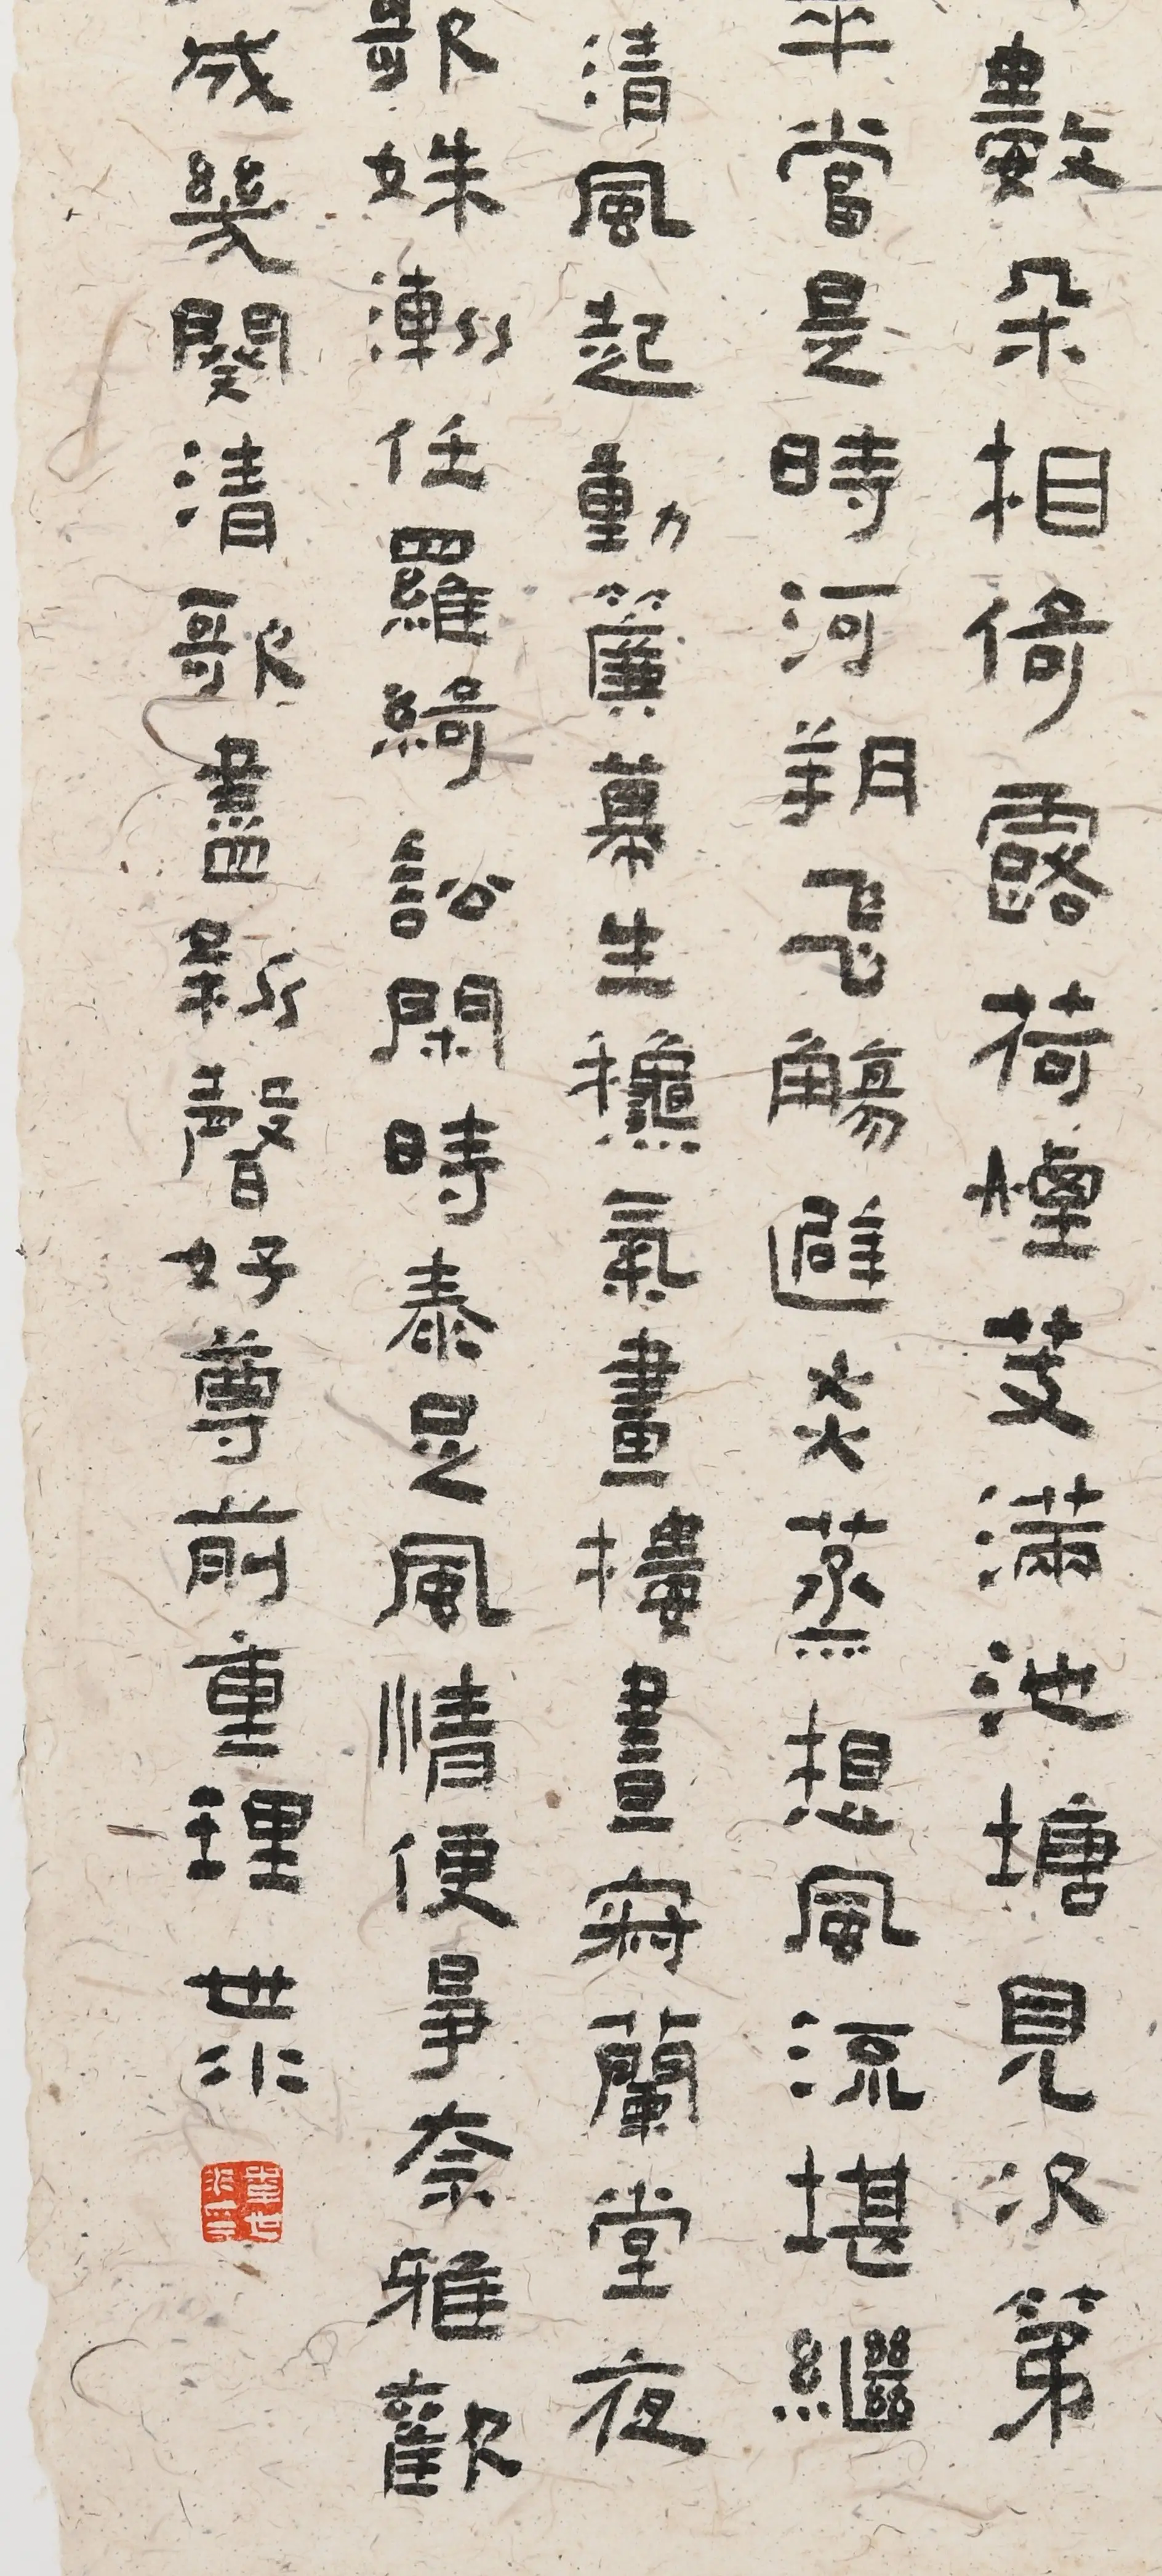 數朵相倚露荷煙芰滿池塘見次第
翠當是時河朔飛觴避炎蒸想風流堪繼
清風起動簾幕生龝氣畫樓晝寂蘭堂夜
歌姝漸任羅綺訟閑時泰足風情便爭奈雅歡
成幾闋清歌盡新聲好尊前重理